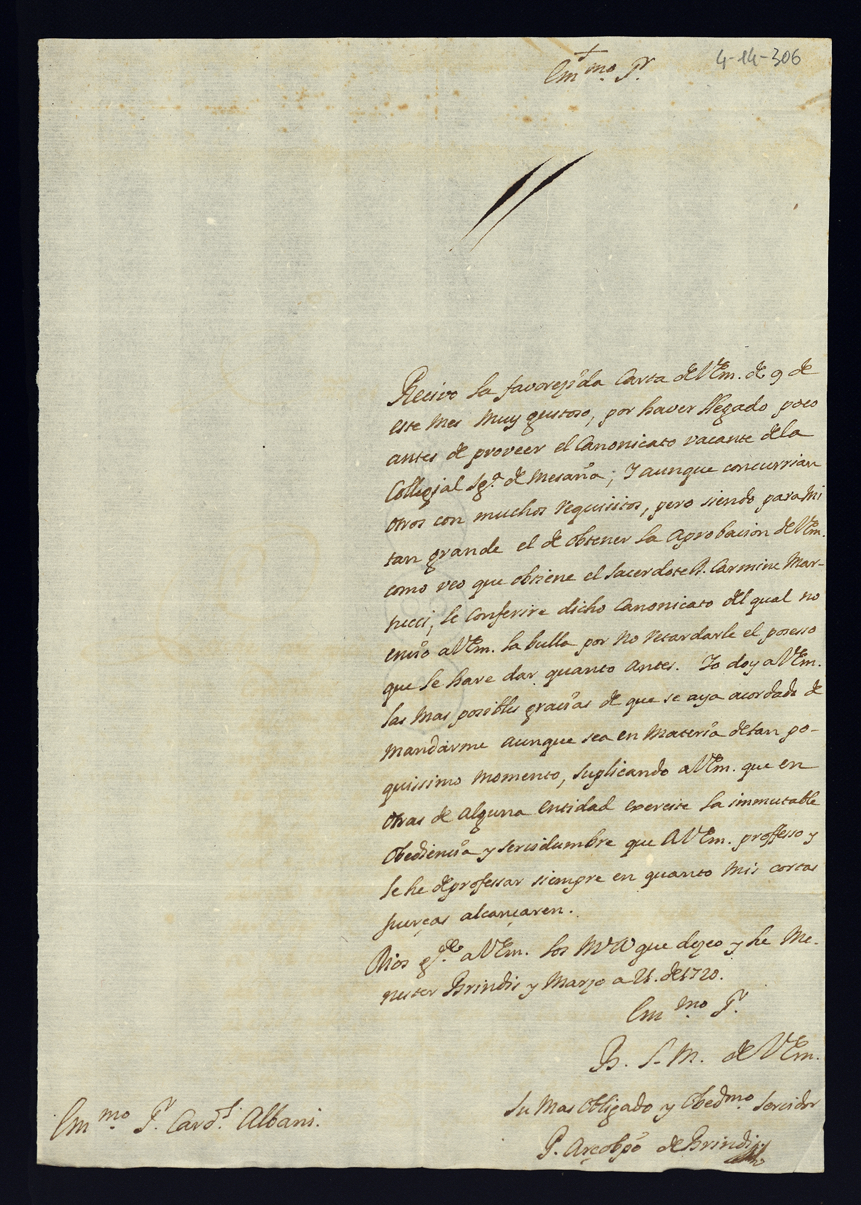 4-14-306
Em.mo S.r
Recivo la favorezida Carta de VEm. de 9 de
este mes muy gustoso, por haver llegado poco
antes de proveer el Canonicato vacante dela
Collegial Igª. de Mesaña; Y aunque concurrian
otros con muchos requisitos, pero siendo para mi
tan grande el de obtener la aprobacion de VEm.
como veo que obtiene el Sacerdote D. Carmine Mar-
nucci, le conferire dicho Canonicato del qual no
envio a VEm. la bulla por no retardarle el posesso
que le hare dar quanto antes. Yo doy a VEm.
las mas posibles gracias de que se aya acordado de
mandarme aunque sea en materia de tan po-
quissimo momento, suplicando a VEm. que en
otras de alguna entidad exercite la immutable
obediencia y servidumbre que a VEm. professo y
le he de professar siempre en quanto mis cortas
fuerças alcançaren.
Dios g.de a VEm. los m.s a.s que dezeo y he me-
nester Brindis y Marzo a 21. de 1720.
Em.mo S.r
B. L. M. de VEm.
Su mas obligado y obed.mo servidor
P. Arçobpõ de Brindis
Em.mo S.r Card.l Albani.